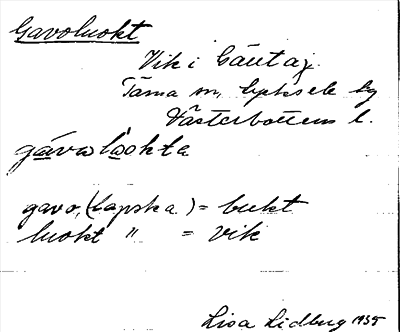 Gavoluokt
Vik i Gäutaj.
Tärna sn, Lycksele by
Västerbottens l.
gávω lωokta
gavo, (Lapska) = bukt
luokt " = vik
Lisa Lidberg 1935